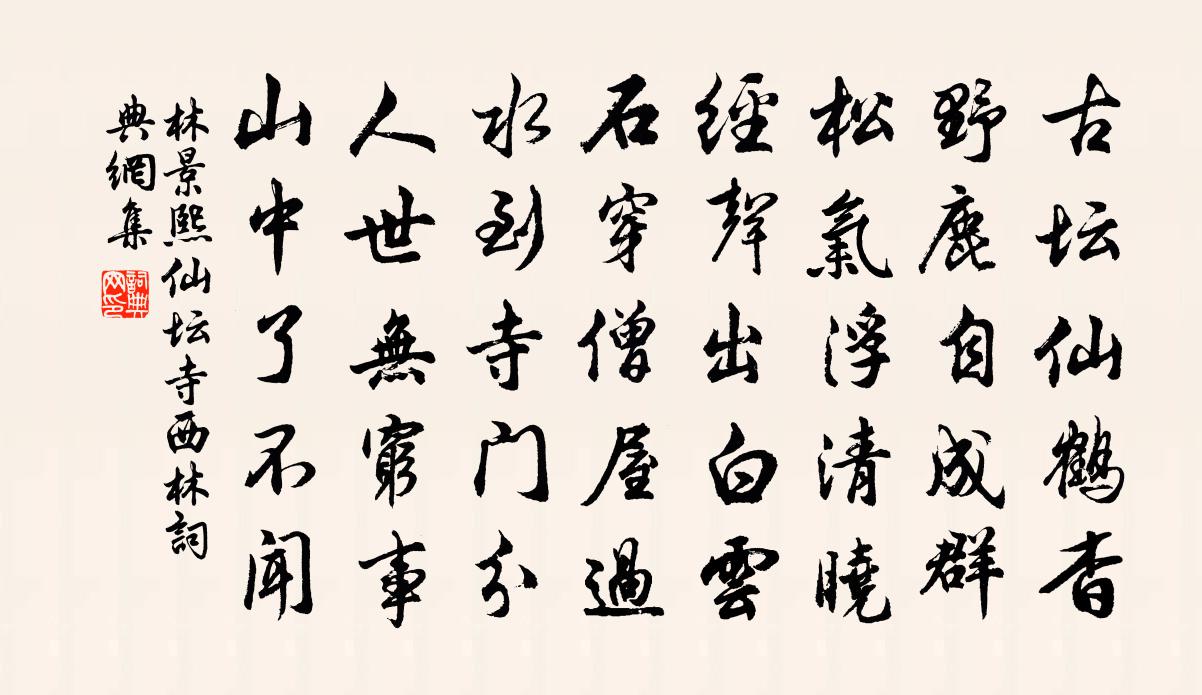 古坛仙鹤杳
野鹿自成群
松氣浮清曉
經聲出白雲
石穿僧屋過
水到寺门分
人世無窮事
山中了不闻
林景熙仙坛寺西林詞
典網集
詞典
网印